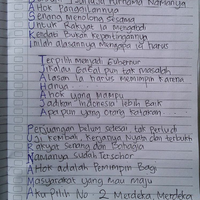 Basuki Tjahaja Purnama Namanya
Ahok Panggilannya
Senang Menolong Sesama
Untuk Rakyat ia Mengabdi
Kendati Bukan Kepentingannya
Inilah alasannya Mengapa ia harus
Terpilih Menjadi Gubernur
Kalau Gagal pun tak masalah
Alasan ia harus Memimpin Karena
Hanya
Ahok yang Mampu
Jadikan Indonesia lebih Baik
Apa pun orang katakan
Perjuangan belum selesai tak perlu di
Uji karnah, Kerjanya Nyata dan terbukti
Rakyat Senang dan Bahagia
Namanya Sudah Tersohor
Ahok adalah Pemimpin Bagi
Masyarakat yang mau maju
Aku Pilih No 2 Merdeka, Merdeka